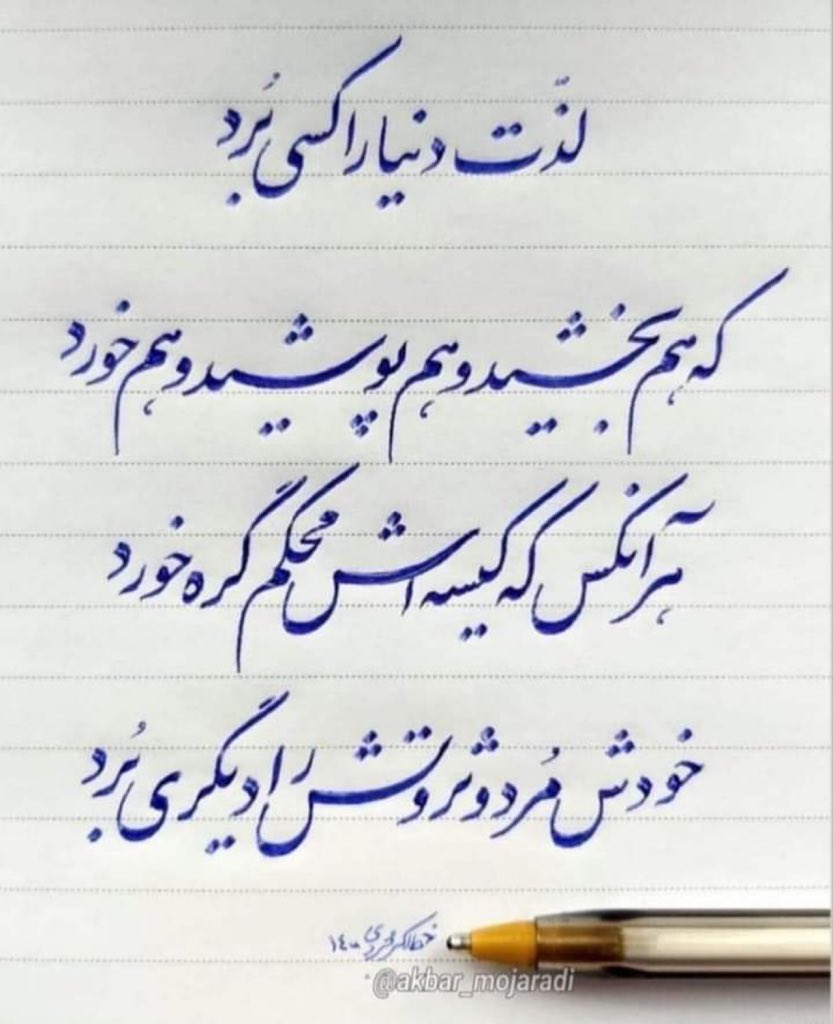 لذّت دنیا را کسی بُرد
که هم بخشید و هم پوشید و هم خورد
هر آنکس که کیسه اش محکم گره خورد
خودش مُرد و ثروتش را دیگری بُرد
@akbar_mojaradi